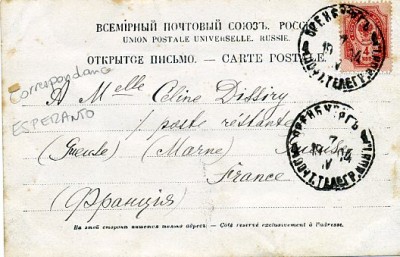 ВСЕМІРНЫЙ ПОЧТОВЫЙ СОЮЗЪ. РОССІЯ
UNION POSTALE UNIVERSELLE. RUSSIE.
ОТКРЫТОЕ ПИСЬМО. — CARTE POSTALE.
Correspondance
ESPERANTO
A Melle Céline Dissiry
poste restante
(Marne)
France
(Франція)
На этой сторонѣ пишется только адресъ. — Côté réservé exclusivement à l'adresse.
ОРЕНБУРГЪ
7
19 IV 04
ОРЕНБУРГЪ
7
19 IV 04